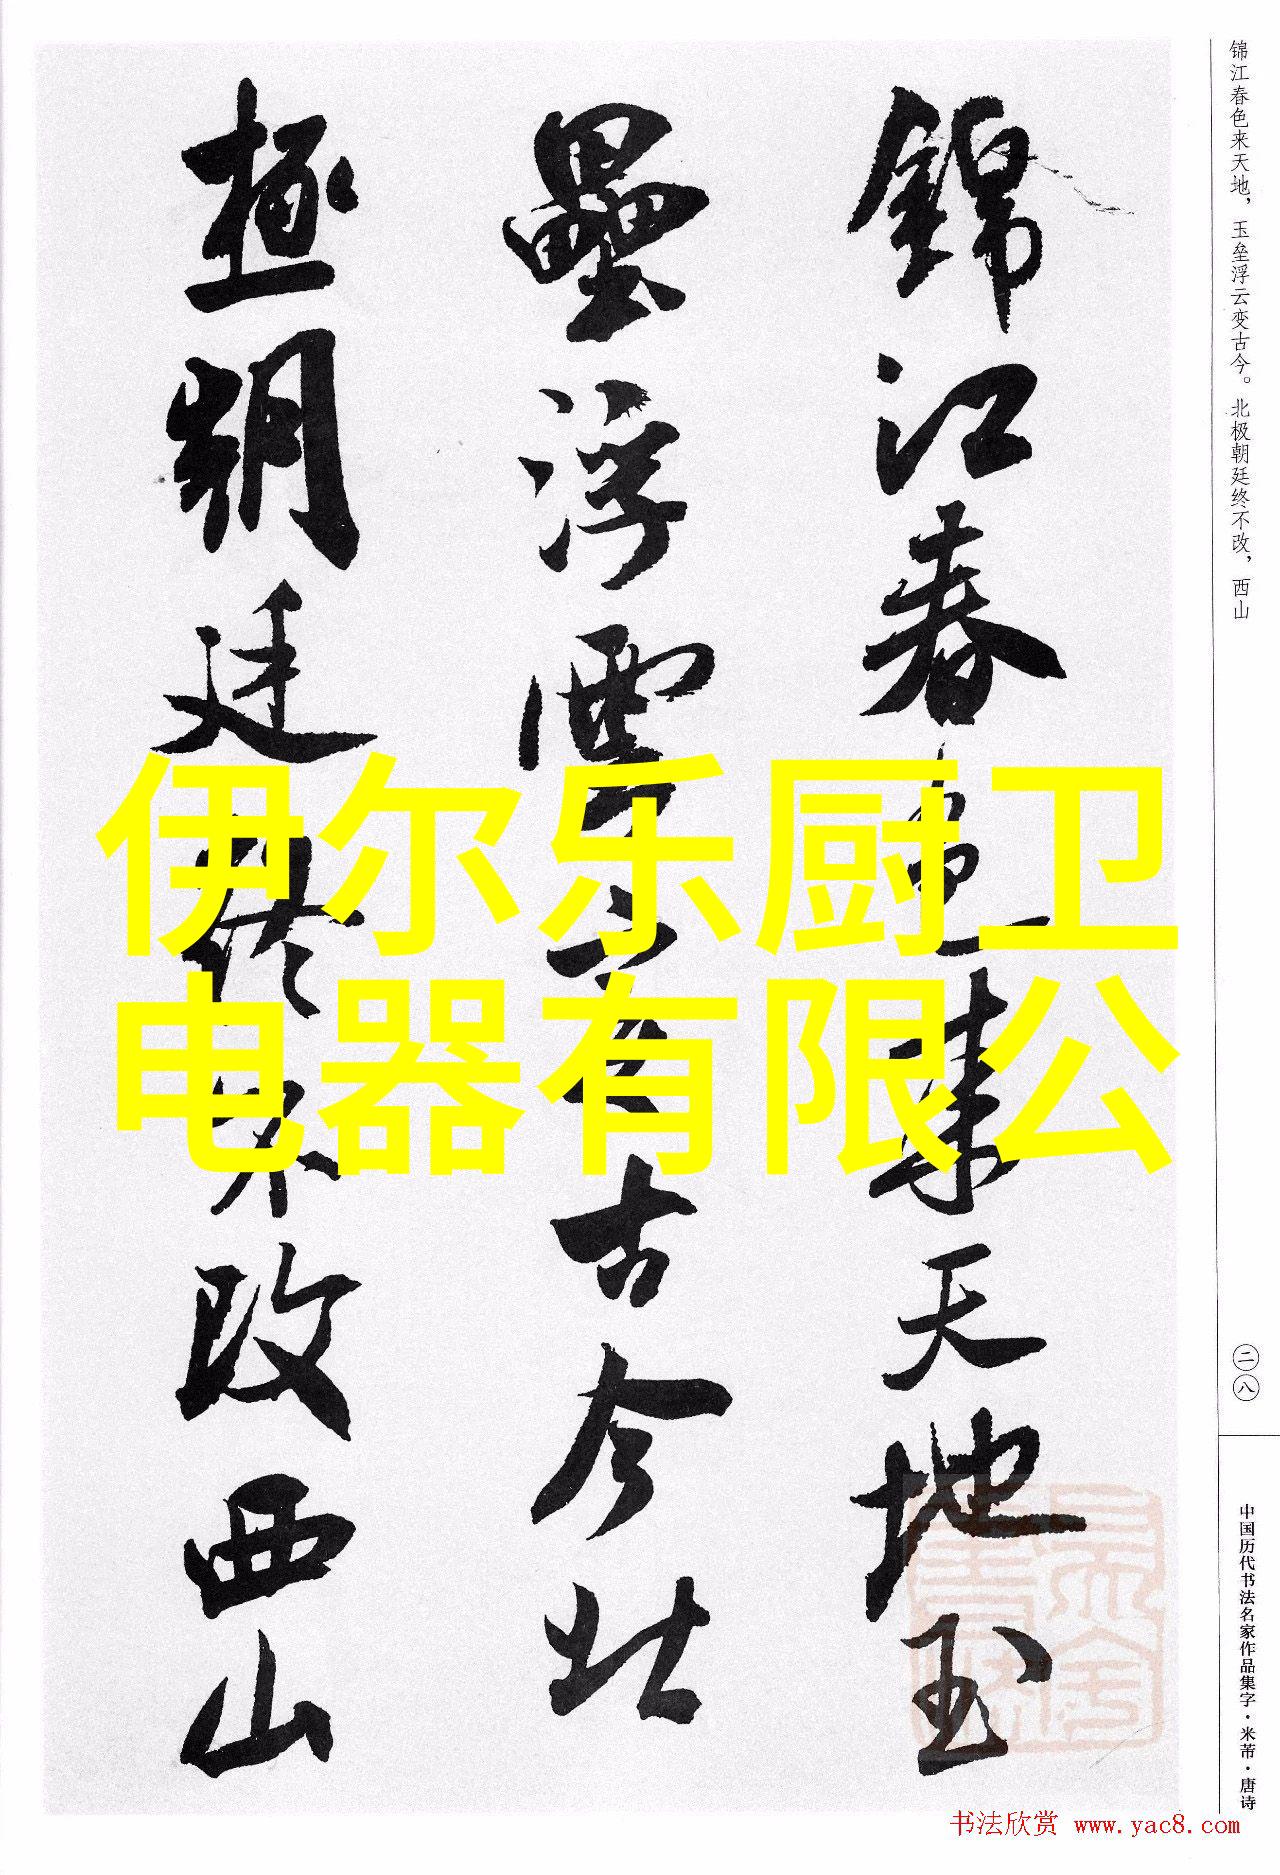 锦江春色来天地，玉垒浮云变古今。北极朝廷终不改，西山
錦江春色来天地玉
壘浮雲変古今北
極朝廷終不改西山
伊尔乐厨卫
电器有限公
二八
中国历代书法名家作品集字·米芾·唐诗
书法欣赏 www.yac8.com